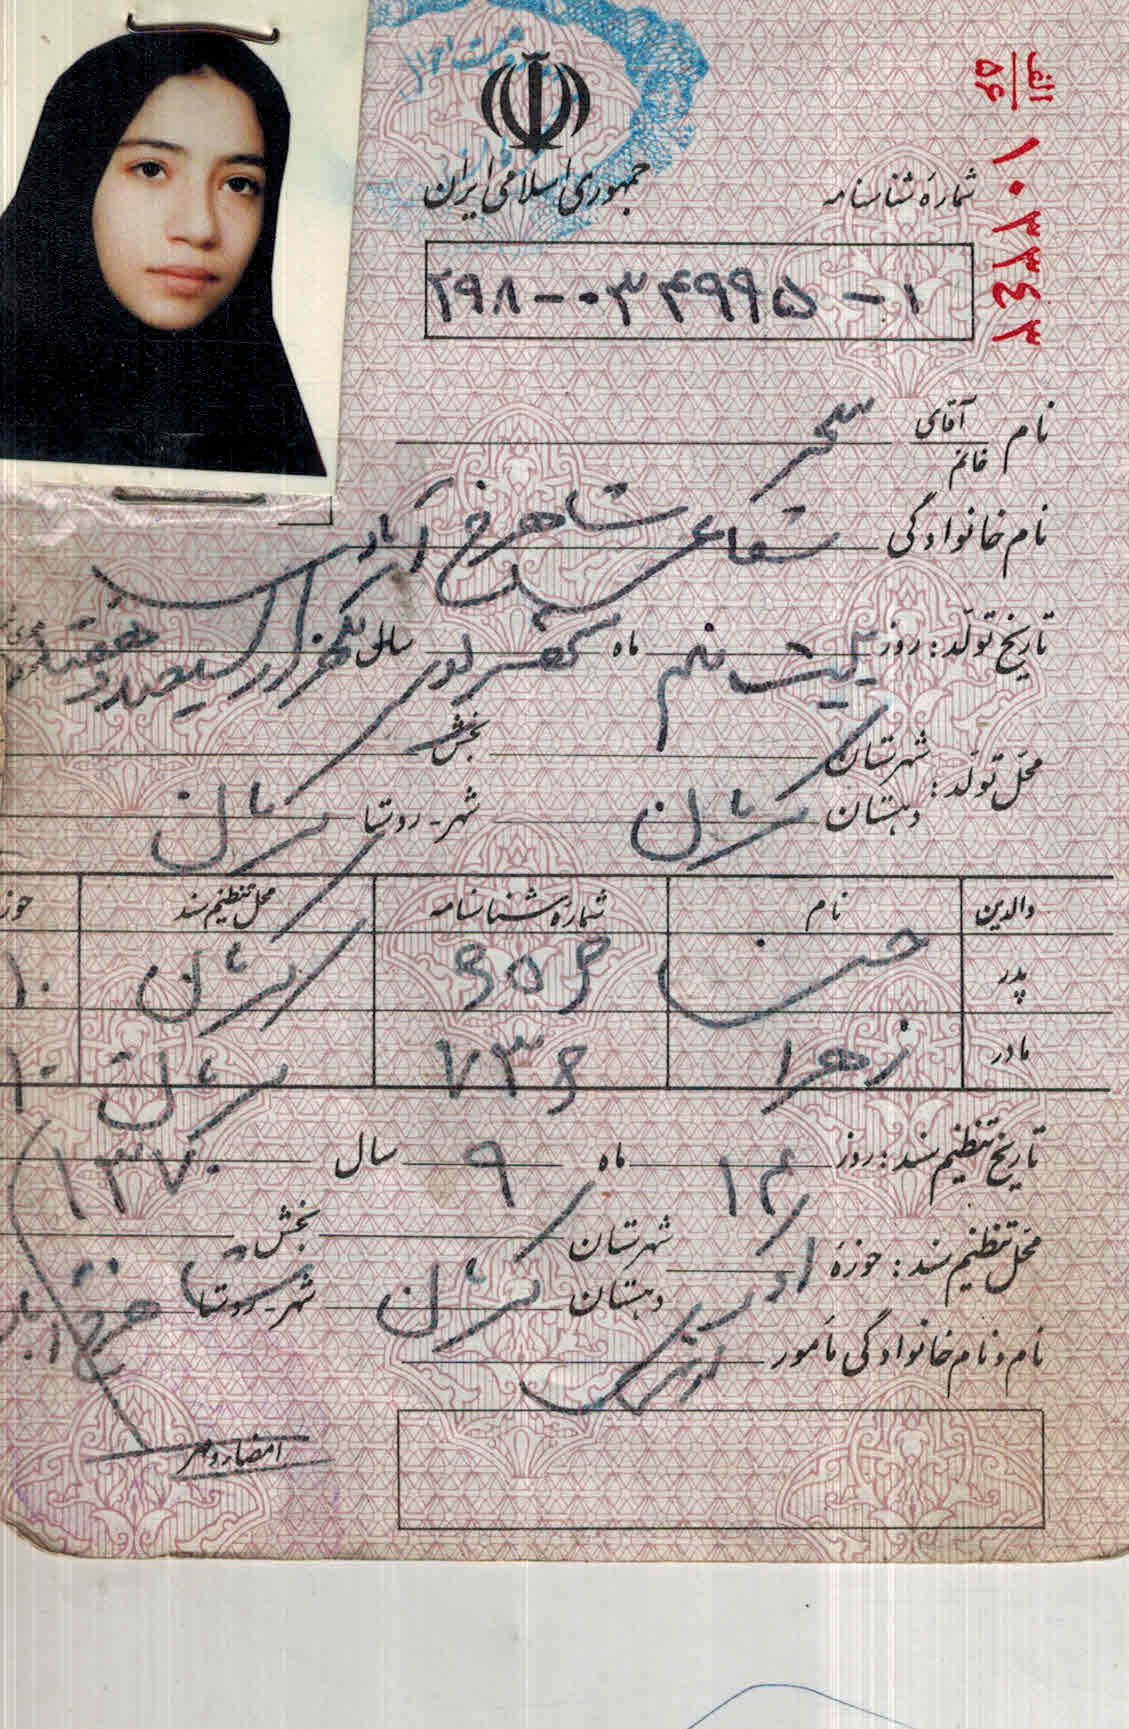 جمهوری اسلامی ایران
الف
۵۶
۱۰۳۳۴۴۳
شماره شناسنامه
۲۹۸-۰۳۴۹۹۵-۱
نام آقای خانم سحر
نام خانوادگی شفاعی شاهرخ آبادی
تاریخ تولد: روز بیست نهم ماه شهریور سال یکهزار و سیصد و هفتاد هجری
محل تولد: شهرستان کرمان بخش
دهستان شهر-روستا کرمان
والدین نام شماره شناسنامه محل تنظیم سند حوزه
پدر حسن کرمان ۱۰
مادر زهرا ۷۳۶ کرمان ۱۰
تاریخ تنظیم سند: روز ۱۴ ماه ۹ سال ۱۳۷۰
محل تنظیم سند: حوزه شهرستان کرمان بخش
دهستان شهر-روستا شاهرخ آباد
نام و نام خانوادگی مأمور
امضاء و مهر